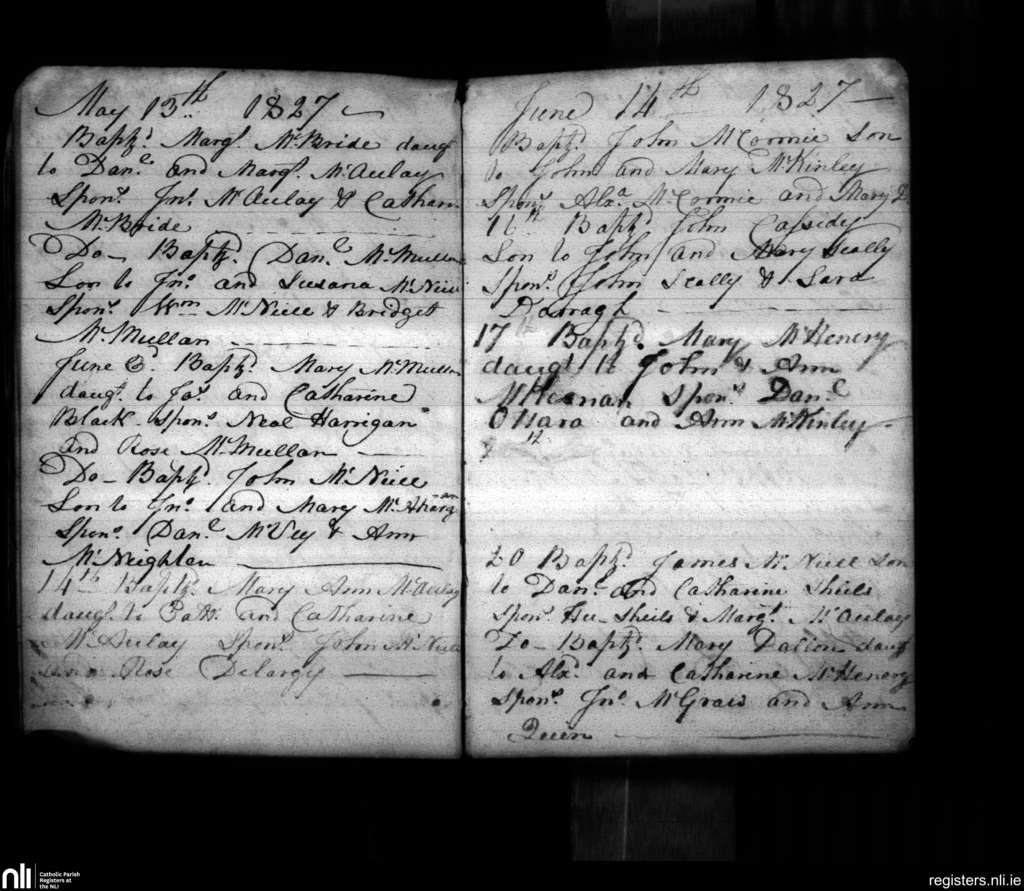 May 13th 1827
Bapzd. Margt. McBride daugt
to Danl. and Margt. McAulay
Sponrs. Jno. McAulay & Catharn
McBride
Do- Bapzd. Danl. McMullan
Son to Jno. and Susana McNiece
Sponrs. Wm McNiece & Bridget
McMullan
June 6. Bapzd. Mary McMullan
daugt. to Jas. and Catharine
Black - Sponrs. Neal Harrigan
and Rose McMullan
Do- Bapzd. John McNiece
Son to Jno. and Mary
Sponrs. Danl. McVey & Ann
McNeighlen
14th Bapzd. Mary Ann McAulay
daugt. to Patk. and Catharine
McAulay Sponrs. John McNiece
and Rose Delargy
June 14th 1827
Bapzd. John McCormic Son
to John and Mary McKinley
Sponrs. Alxa. McCormic and Mary Do
16th Bapzd John Cassidy
Son to John and Mary Scally
Sponrs. John Scally & Sara
Darragh
17th Bapzd. Mary McHenery
daugt. to John & Ann
Sponrs. Danl.
OHara and Ann McKinley
20 Bapzd. James McNiece Son
to Danl. and Catharine Sheils
Sponrs. Hu- Sheils & Margt. McAulay
Do- Bapzd. Mary Dallon daugt
to Alxr. and Catharine McHenery
Sponrs. Jno. McGraw and Ann
Queen
nli
Catholic Parish
Registers at
the NLI
registers.nli.ie